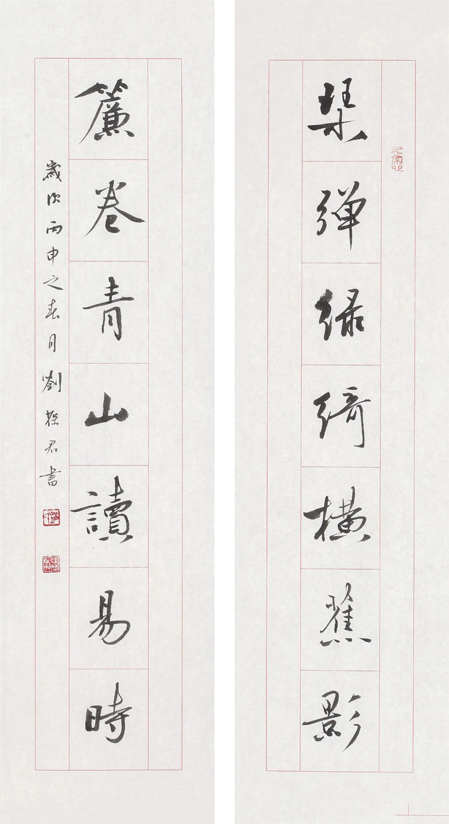 琹弹绿绮横蕉影
簾卷青山讀易時
歲次丙申之春月劉

君書